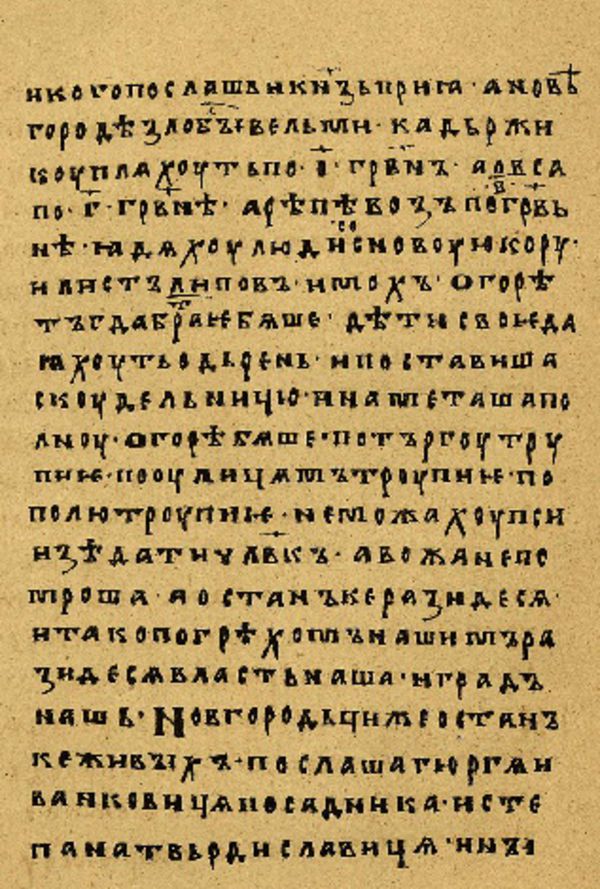 никогопослашвикн҃зьприꙗ · ановѣ
городѣзлобы҇вельми · кадьржи
коуплѧхоутьпо · і҃ · грвн҃ъ · аовьса
по · г҃ · грвн҃ѣ · арѣпѣвозъпо · в҃ · грвь
нѣ · ꙗдѧхоулюдиѥсосновоуюкору ·
илистълиповъ · имохъ · огорѣ
тъгдабратиѥбѧше · дѣтисвоꙗда
ꙗхоутьодьрень · ипоставиша
скоудельницю · инаметашапо
лноу · огорѣбѧше · потъргоутру
пиѥ · пооулицѧмътроупиѥ · по
полютроупиѥ · неможахоупси
изѣдатичл҃вкъ · авожанепо
мроша · аостанъкеразидесѧ ·
итакопогрѣхомънашимъра
зидесѧвластьнаша · иградъ
нашь · Новгородьцижеостанъ
кеживыхъ · послашагюргѧи
ванковицѧпосадника · исте
панатвьрдиславицѧ · ины